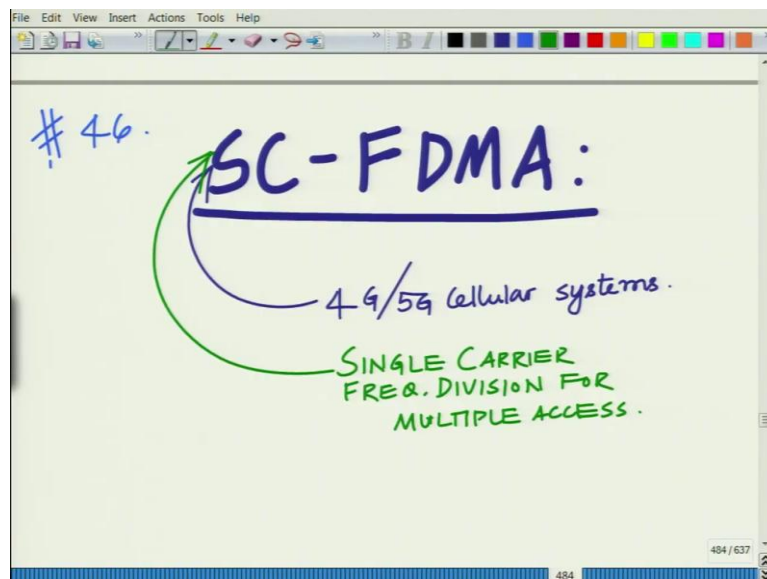 File Edit View Insert Actions Tools Help
B I
# 46.
SC-FDMA:
4G/5G Cellular systems.
SINGLE CARRIER
FREQ. DIVISION FOR
MULTIPLE ACCESS.
484/637
484